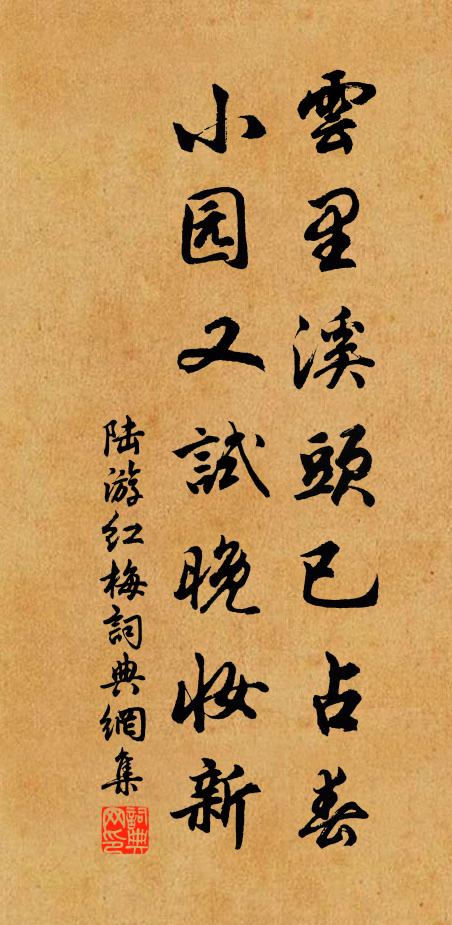 雲里溪頭已占春
小园又試晚妆新
陆游红梅詞典網集
詞典网印